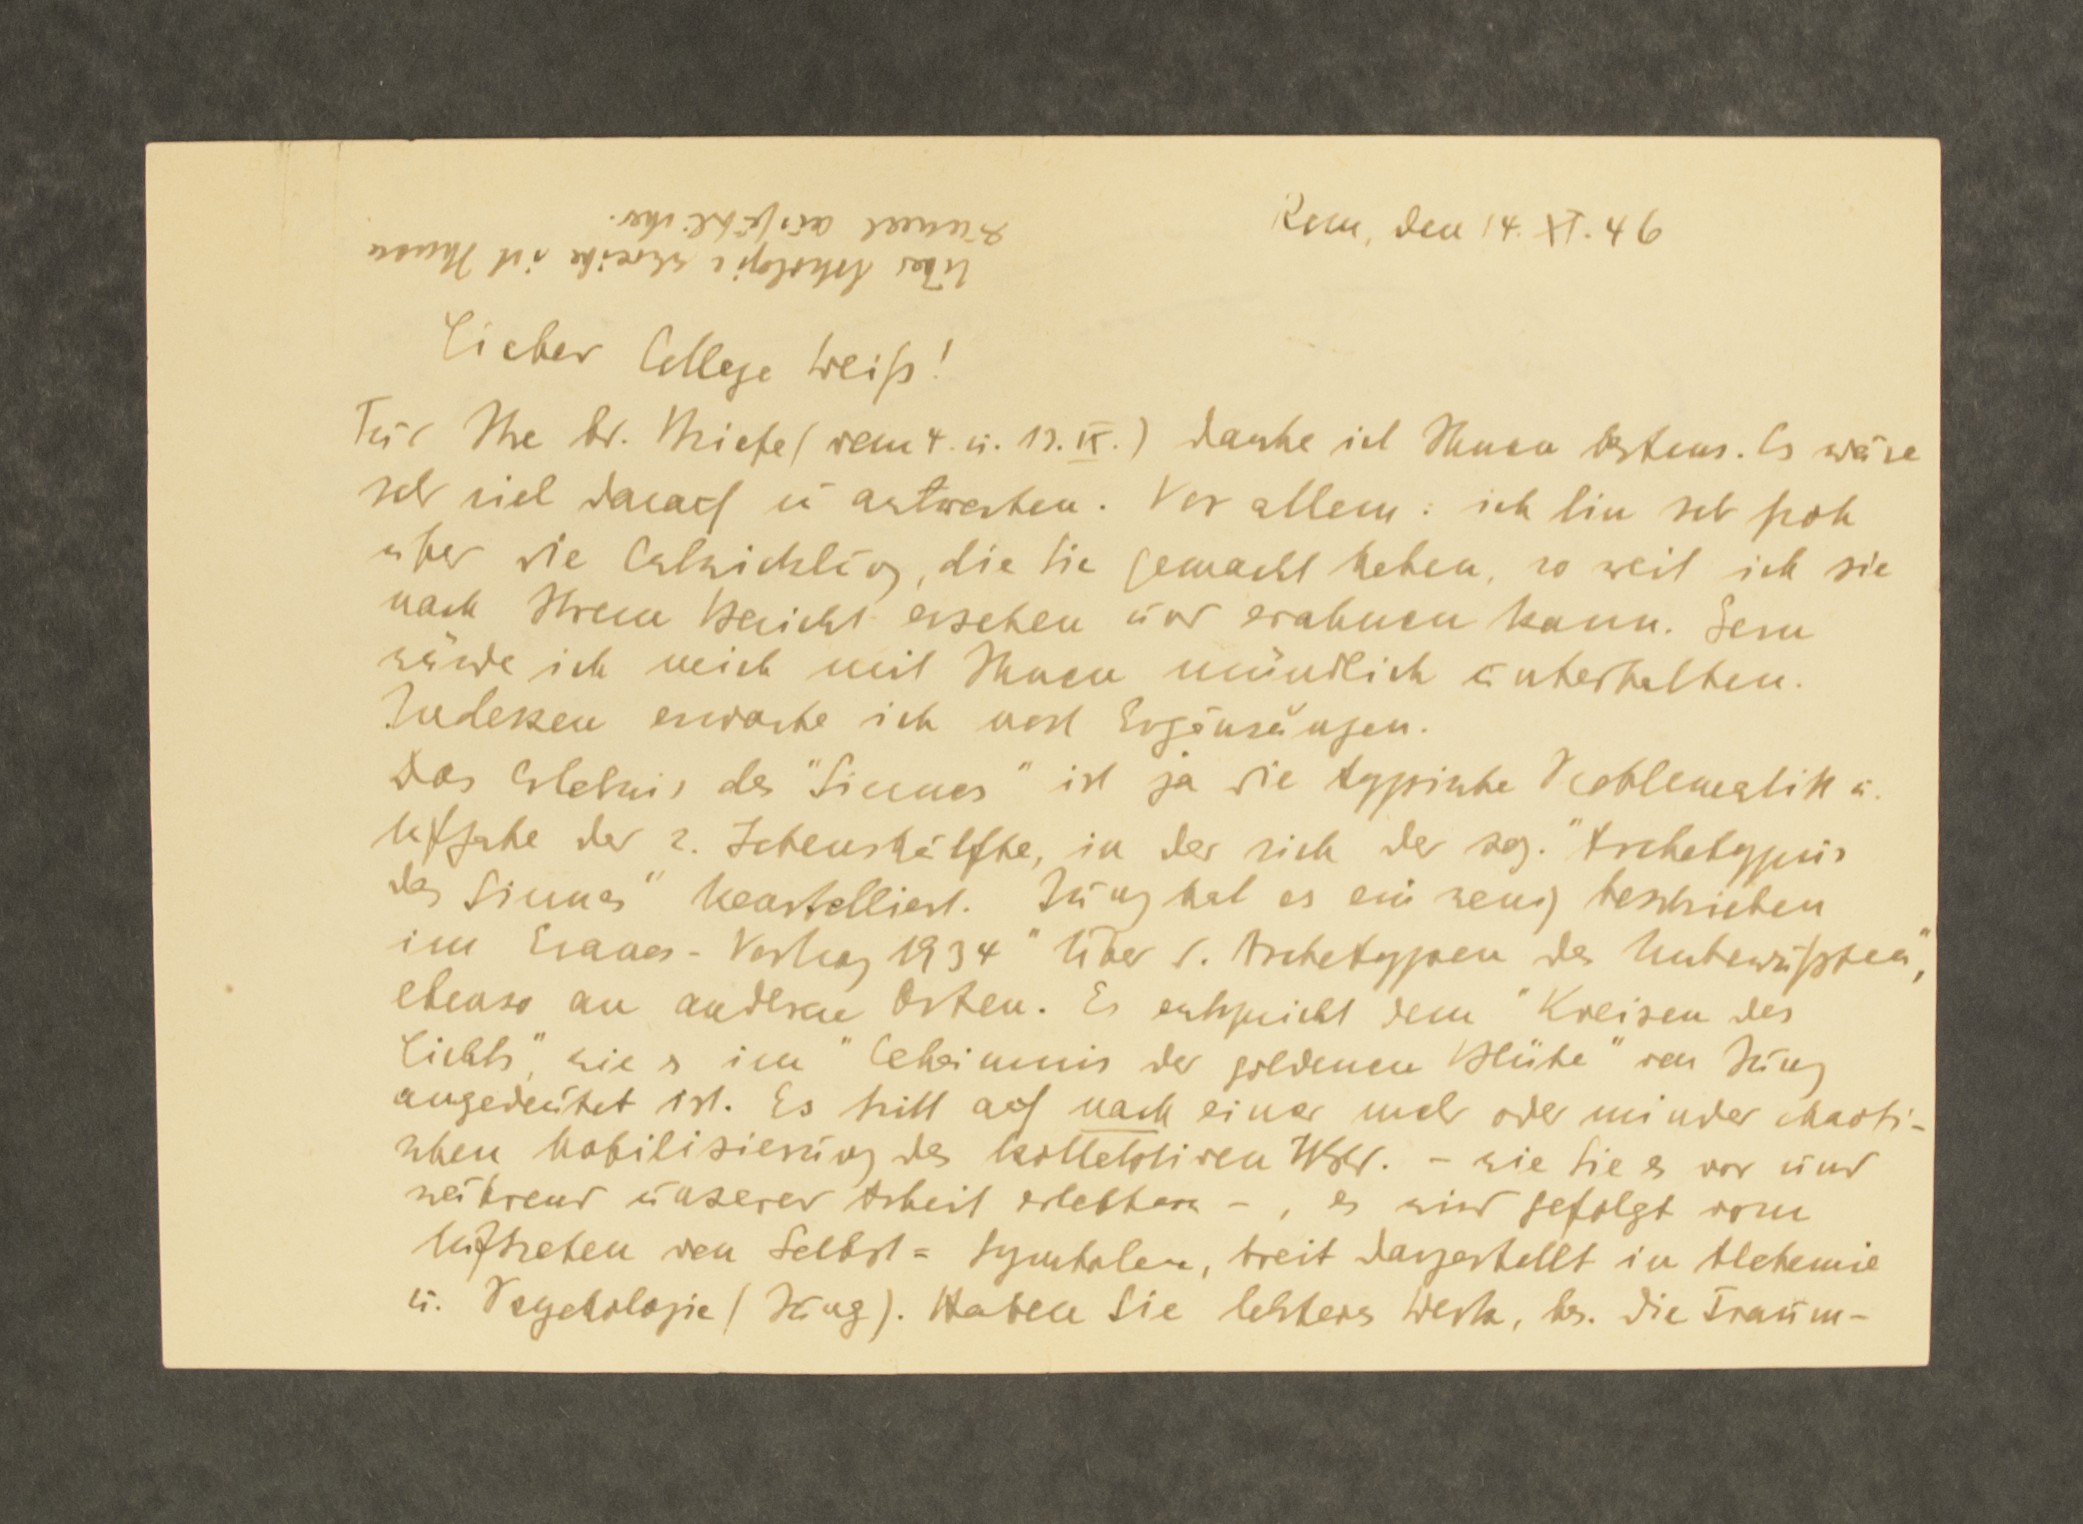 Rom, den 14. XI. 46
Über Astrologie schreibe ich Ihnen
einmal ausführlicher.
Lieber College Weiß!
Für Ihre br. Briefe (vom 4. u. 13. IX.) danke ich Ihnen bestens. Es wäre
sehr viel darauf zu antworten. Vor allem: ich bin sehr froh
über die Entwicklung, die Sie gemacht haben, so weit ich sie
nach Ihrem Bericht ersehen und erahnen kann. Gern
würde ich mich mit Ihnen mündlich unterhalten.
Indessen erwarte ich noch Ergänzungen.
Das Erlebnis des "Sinnes" ist ja die typische Problematik u.
Aufgabe der 2. Lebenshälfte, in der sich der sog. "Archetypus
des Sinnes" konstelliert. Jung hat es ein wenig beschrieben
im Eranos-Vortrag 1934 "Über d. Archetypen des Unbewußten",
ebenso an anderen Orten. Es entspricht dem "Kreisen des
Lichts", wie es im "Geheimnis der goldenen Blüte" von Jung
angedeutet ist. Es tritt auf nach einer mehr oder minder chaoti-
schen Mobilisierung des kollektiven Ubw. - wie Sie es vor und
während unserer Arbeit erlebten -, es wird gefolgt vom
Auftreten von Selbst-Symbolen, breit dargestellt in Alchemie
u. Psychologie (Jung). Haben Sie letzteres Werk, bes. die Traum-